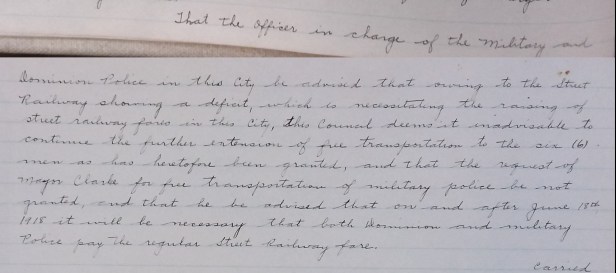 That the Officer in charge of the Military and
Dominion Police in this City be advised that owing to the Street
Railway showing a deficit, which is necessitating the raising of
street railway fares in this City, this Council deems it inadvisable to
continue the further extension of free transportation to the six (6)
men as has heretofore been granted, and that the request of
Mayor Clarke for free transportation of military police be not
granted, and that he be advised that on and after June 18th
1918 it will be necessary that both Dominion and military
Police pay the regular Street Railway fare.
Carried